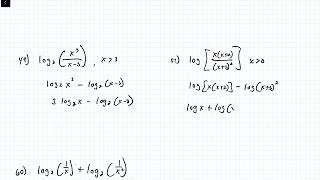 49) log₂(x³/(x-3)) , x>3
log₂ x³ - log₂(x-3)
3 log₂ x - log₂(x-3)
51) log[x(x+2)/(x+3)²] x>0
log[x(x+2)] - log(x+3)²
log x + log(
60) log₂(1/x) + log₂(1/x²)